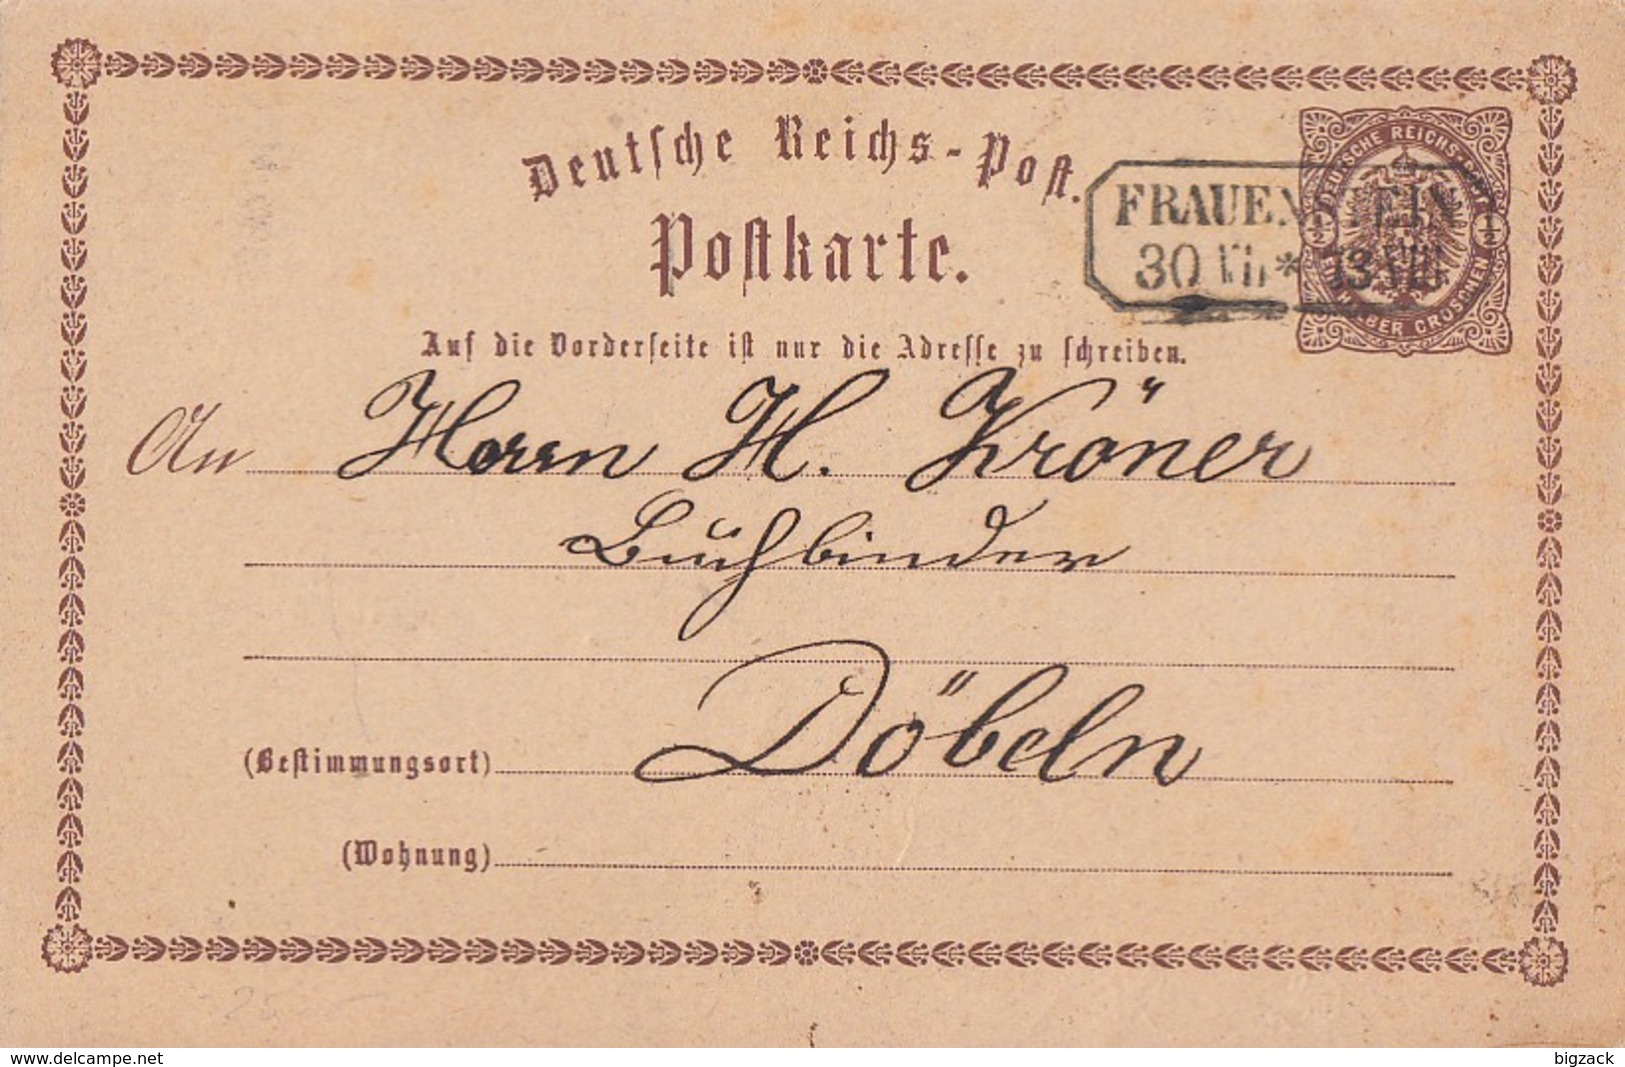 Deutsche Reichs-Post.
Postkarte.
DEUTSCHE REICHS-POST
½ ½
EIN HALBER GROSCHEN
FRAUENSTEIN
30 VII * 73 VIII
Auf die Vorderseite ist nur die Adresse zu schreiben.
An Herrn H. Kröner
Buchbinder
(Bestimmungsort) Döbeln
(Wohnung)
www.delcampe.net
bigzack